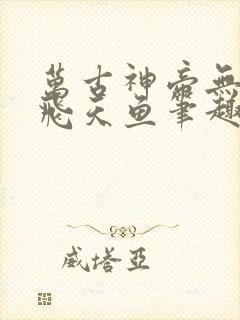 萬古神帝無
飛天魚筆趣
威塔亞